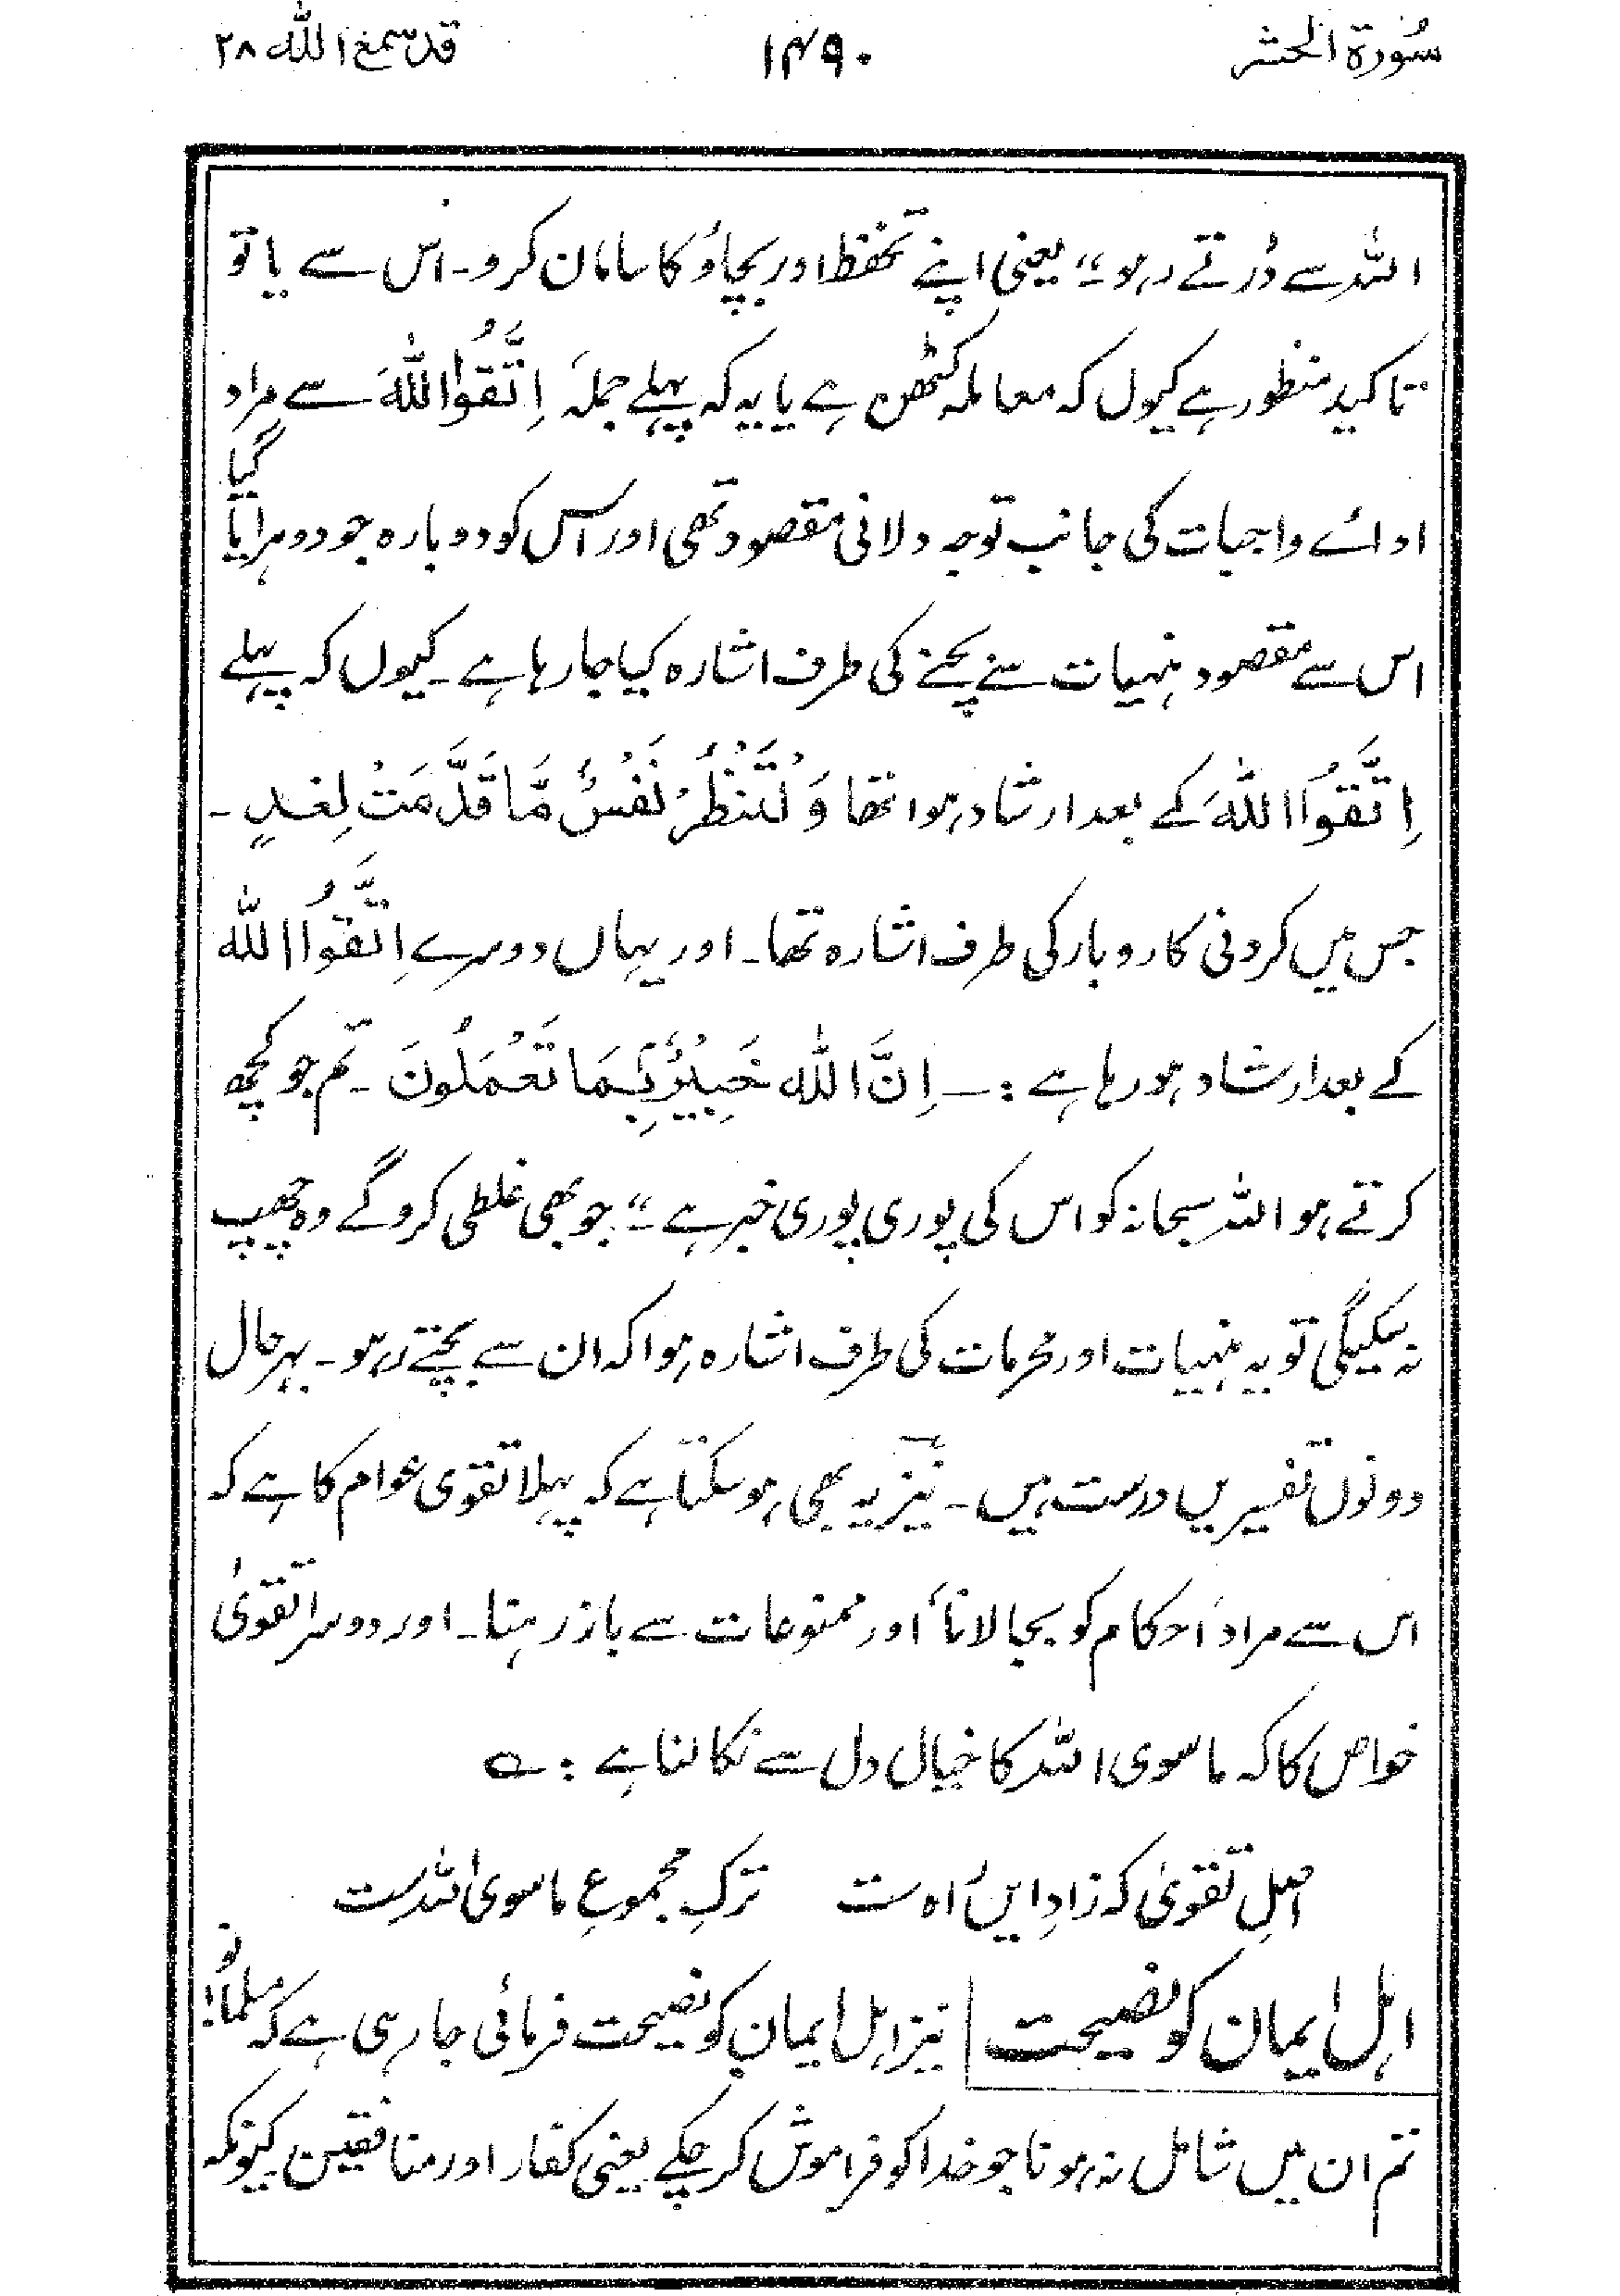 سُورۃ الحشر ۱۴۹۰ قد سمع اللہ ۲۸
اللہ سے ڈرتے رہو"۔ یعنی اپنے تحفظ اور بچاؤ کا سامان کرو۔ اس سے یا تو
تاکید منظور ہے کیوں کہ معاملہ کٹھن ہے یا یہ کہ پہلے جملہ اِتَّقُوا اللّٰهَ سے مراد
ادائے واجبات کی جانب توجہ دلانی مقصود تھی اور اس کو دوبارہ جو دوہرایا گیا
اس سے مقصود منہیات سے بچنے کی طرف اشارہ کیا جا رہا ہے۔ کیوں کہ پہلے
اِتَّقُوا اللّٰهَ کے بعد ارشاد ہوا تھا وَلْتَنْظُرْ نَفْسٌ مَّا قَدَّمَتْ لِغَدٍ۔
جس میں کردنی کاروبار کی طرف اشارہ تھا۔ اور یہاں دوسرے اِتَّقُوا اللّٰه
کے بعد ارشاد ہو رہا ہے :۔ اِنَّ اللّٰه خَبِیْرٌۢ بِمَا تَعْمَلُونَ۔ تم جو کچھ
کرتے ہو اللہ سبحانہ کو اس کی پوری پوری خبر ہے"۔ جو بھی غلطی کرو گے وہ چھپ
نہ سکیگی تو یہ منہیات اور محرمات کی طرف اشارہ ہوا کہ ان سے بچتے رہو۔ بہرحال
دونوں تفسیریں درست ہیں۔ نیز یہ بھی ہو سکتا ہے کہ پہلا تقوی عوام کا ہے کہ
اس سے مراد احکام کو بجا لانا اور ممنوعات سے باز رہنا۔ اور دوسرا تقویٰ
خواص کا کہ ماسوی اللہ کا خیال دل سے نکالنا ہے : ؎
اصلِ تقویٰ کہ زادِ ایں راہ ست ترکِ مجموعِ ماسویٰ اللہ ست
اہل ایمان کو نصیحت نیز اہل ایمان کو نصیحت فرمائی جا رہی ہے کہ مسلمانو!
تم ان میں شامل نہ ہونا جو خدا کو فراموش کر چکے یعنی کفار اور منافقین۔ کیونکہ